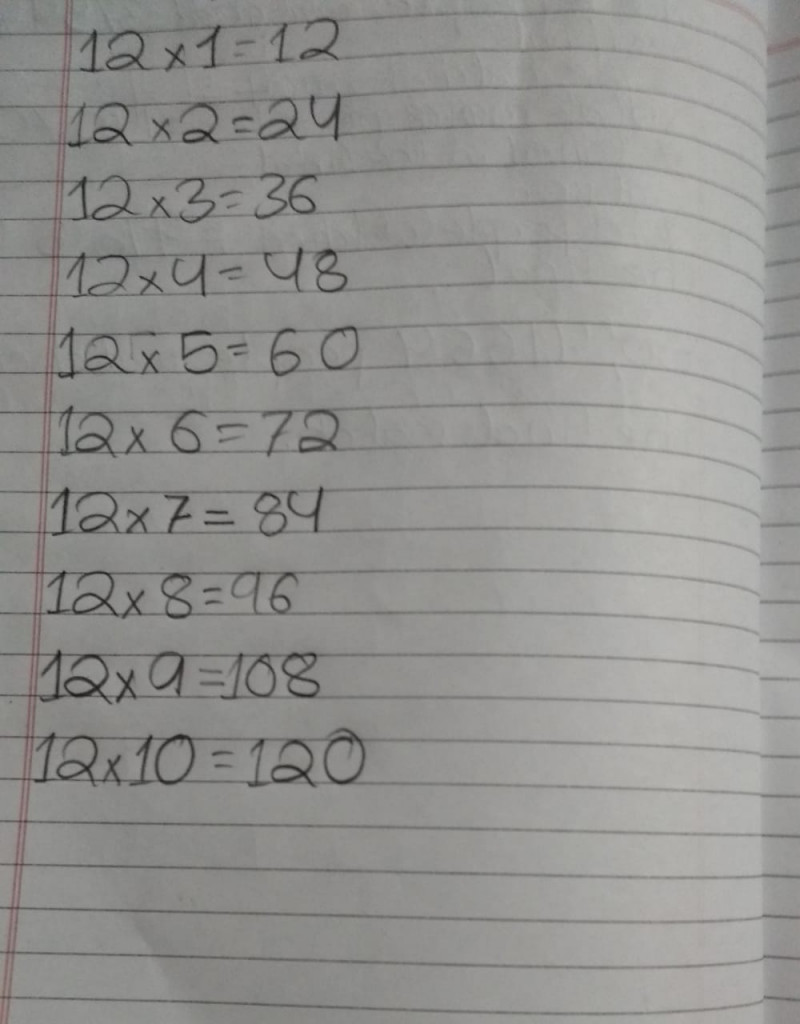 12×1=12
12×2=24
12×3=36
12×4=48
12×5=60
12×6=72
12×7=84
12×8=96
12×9=108
12×10=120